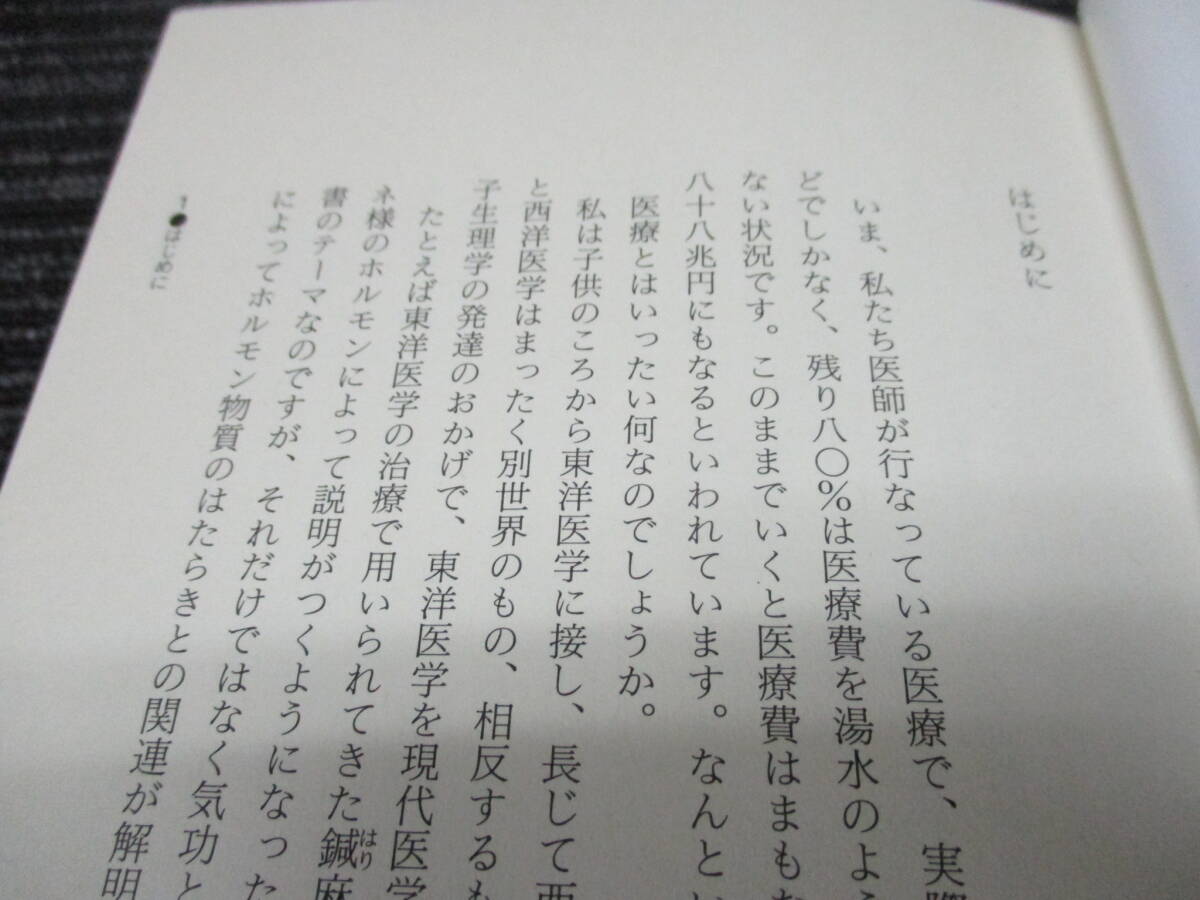 はじめに
いま、私たち医師が行なっている医療で、実際
どでしかなく、残り八〇％は医療費を湯水のよう
ない状況です。このままでいくと医療費はまもな
八十八兆円にもなるといわれています。なんとい
医療とはいったい何なのでしょうか。
私は子供のころから東洋医学に接し、長じて西
と西洋医学はまったく別世界のもの、相反するも
子生理学の発達のおかげで、東洋医学を現代医学
たとえば東洋医学の治療で用いられてきた鍼麻
ネ様のホルモンによって説明がつくようになった
書のテーマなのですが、それだけではなく気功と
によってホルモン物質のはたらきとの関連が解明
1●はじめに